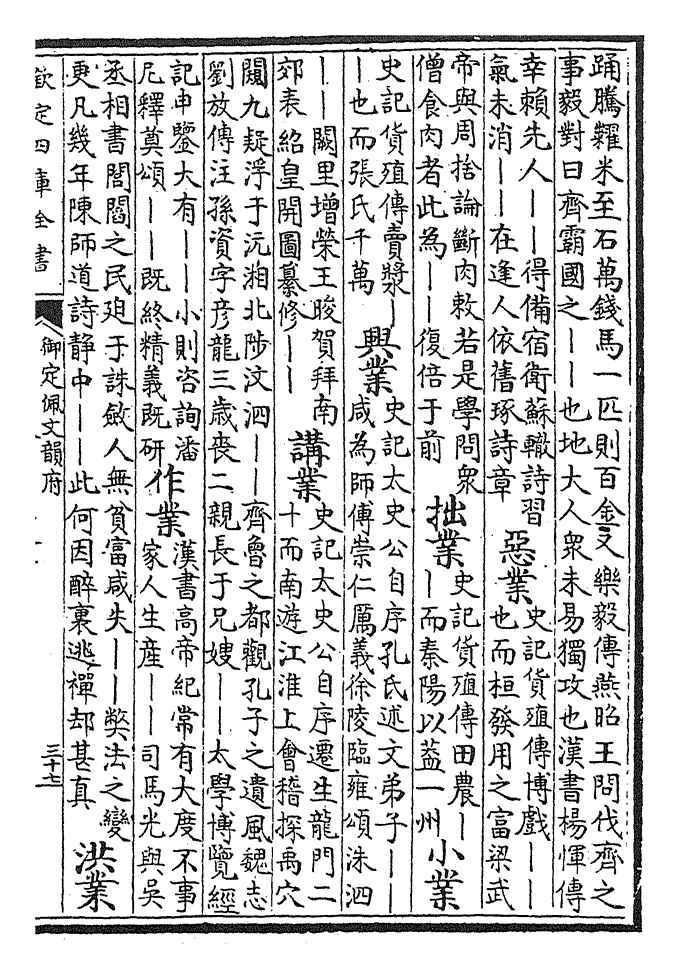 踊騰糶米至石萬錢馬一匹則百金又樂毅傳燕昭王問伐齊之
事毅對曰齊霸國之——也地大人衆未易獨攻也漢書楊惲傳
幸賴先人——得備宿衛蘇轍詩習
氣未消——在逢人依舊琢詩章
惡業
史記貨殖傳博戲——
也而桓發用之富梁武
帝與周捨論斷肉敕若是學問衆
僧食肉者此為——復倍于前
拙業
史記貨殖傳田農—
—而秦陽以蓋一州
小業
史記貨殖傳賣漿—
—也而張氏千萬
興業
史記太史公自序孔氏述文弟子——
咸為師傅崇仁厲義徐陵臨雍頌洙泗
——闕里增榮王晙賀拜南
郊表紹皇開圖纂修——
講業
史記太史公自序遷生龍門二
十而南游江淮上會稽探禹穴
闚九疑浮于沅湘北陟汶泗——齊魯之都觀孔子之遺風魏志
劉放傳注孫資字彥龍三歲喪二親長于兄嫂——太學博覽經
記申鑒大有——小則咨詢潘
尼釋奠頌——既終精義既研
作業
漢書高帝紀常有大度不事
家人生產——司馬光與吳
丞相書閭閻之民廹于誅斂人無貧富咸失——弊法之變
更凡幾年陳師道詩靜中——此何因醉裏逃禪却甚真
洪業
欽定四庫全書
御定佩文韻府
三十七